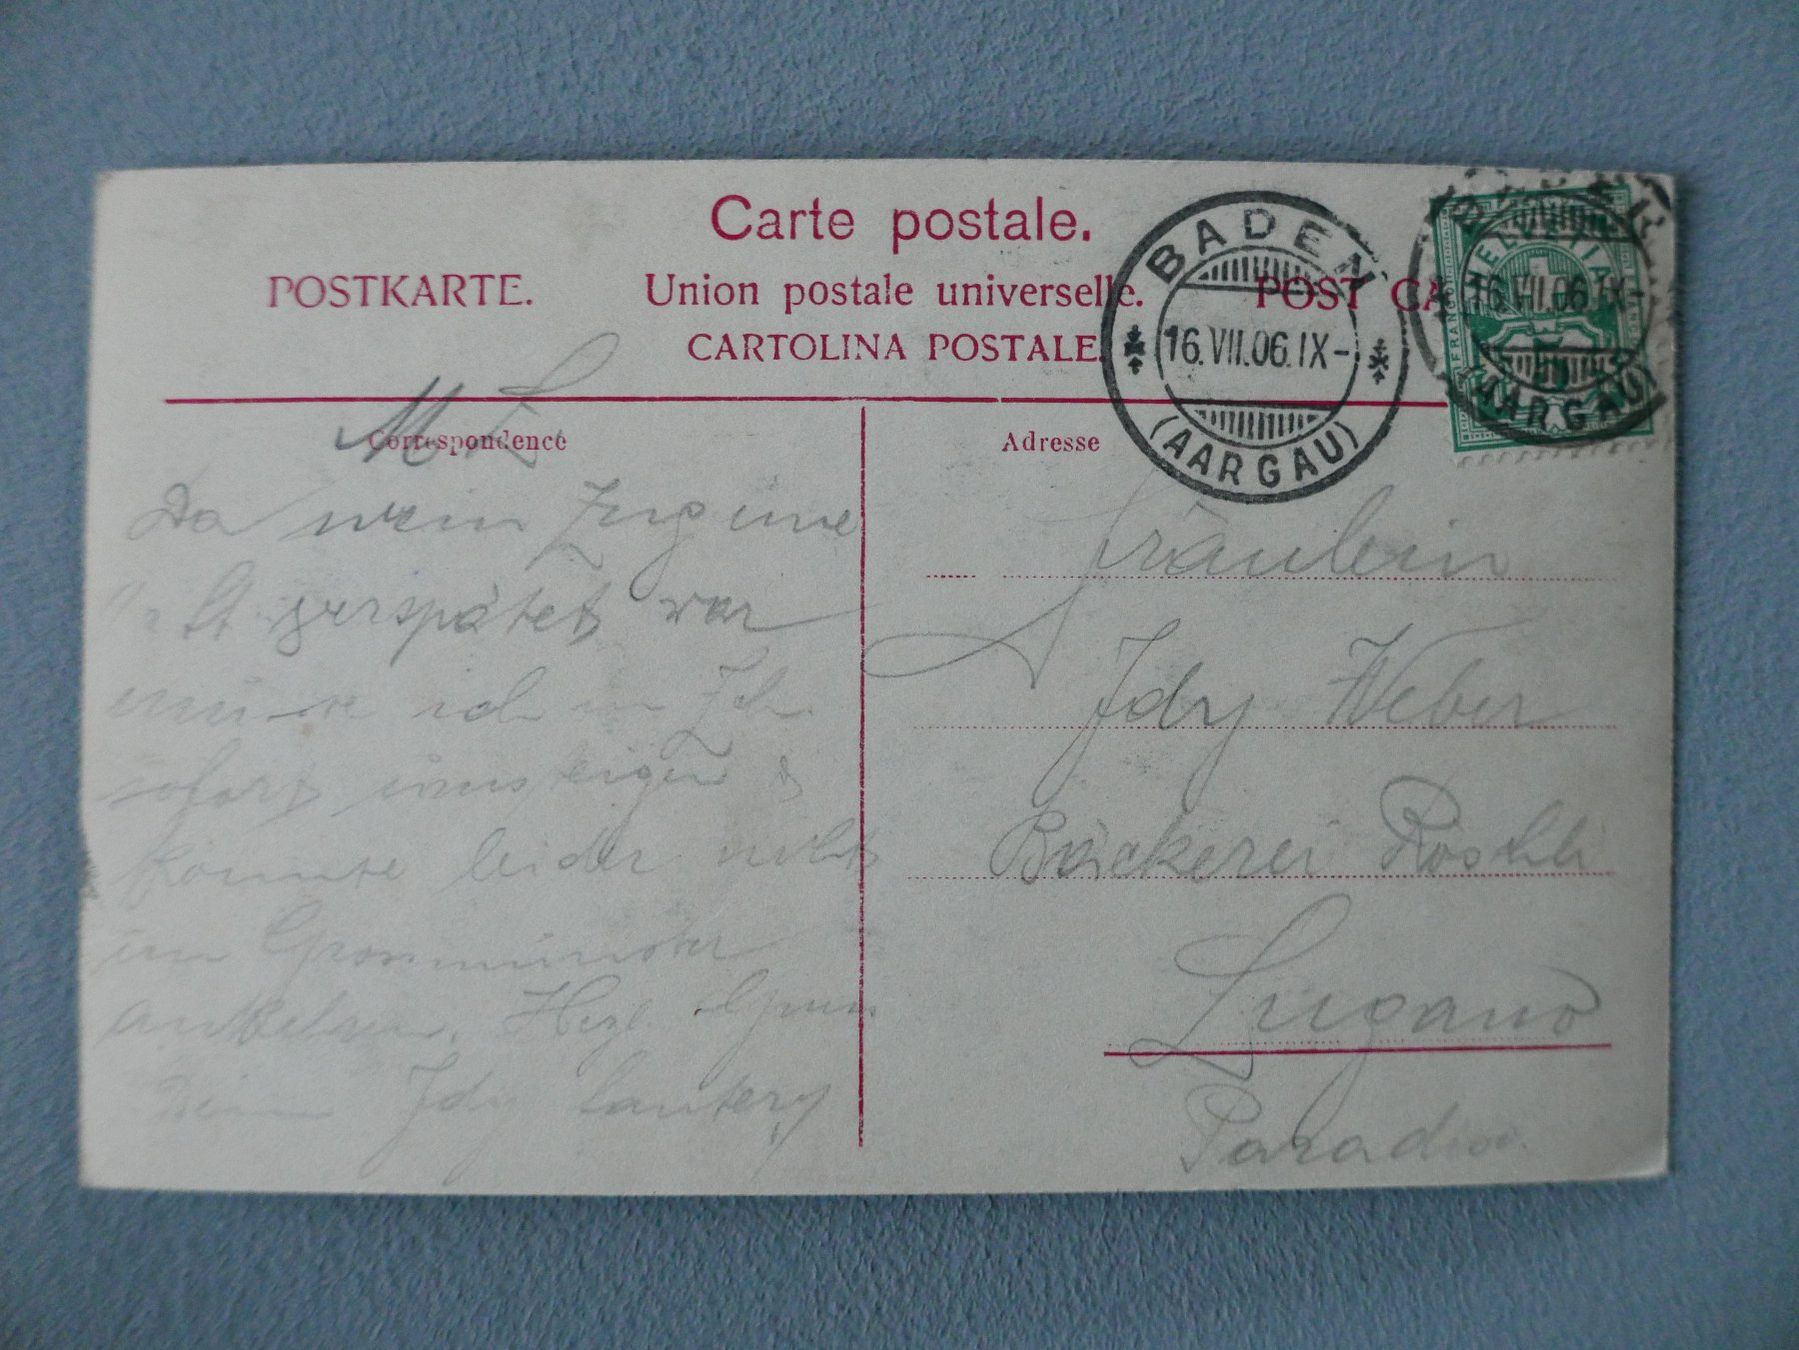 Carte postale.
POSTKARTE. Union postale universelle. POST CA
CARTOLINA POSTALE.
BADEN
16.VII.06.IX-
(AARGAU)
HELVETIA
FRANCO
16.VII.06.IX-
(AARGAU)
Correspondence
M. L.
Da mein Zug eine
verspätet war
musste ich in Zch.
sofort einsteigen &
konnte leider nicht
im Grossmünster
Herzl. Gruss
Dein Idy
Adresse
Fräulein
Idy Weber
Bäckerei
Lugano
Paradiso.